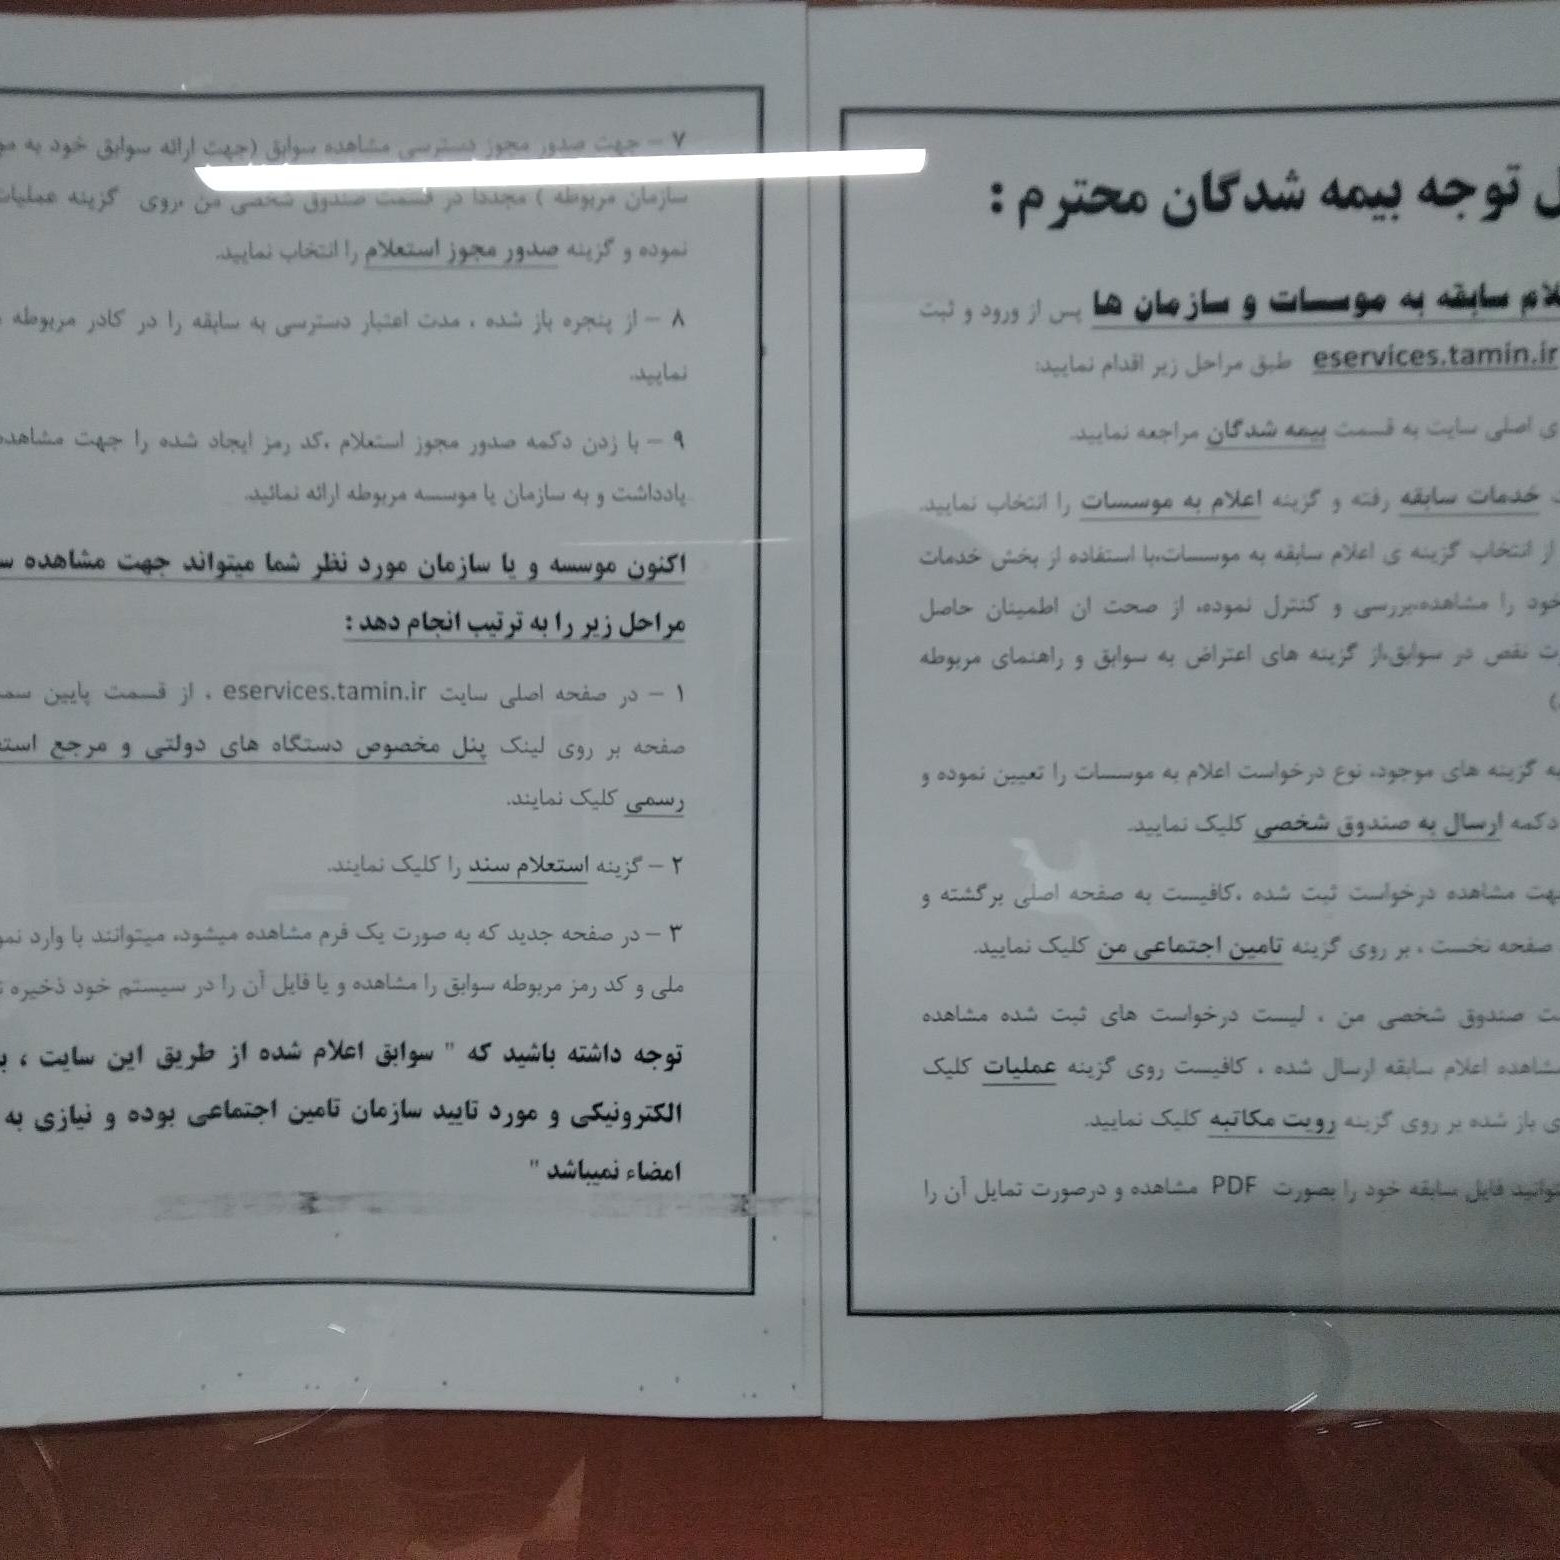 توجه بیمه شدگان محترم :
سابقه به موسسات و سازمان ها پس از ورود و ثبت
eservices.tamin.ir طبق مراحل زیر اقدام نمایید:
اصلی سایت به قسمت بیمه شدگان مراجعه نمایید.
خدمات سابقه رفته و گزینه اعلام به موسسات را انتخاب نمایید.
از انتخاب گزینه ی اعلام سابقه به موسسات،با استفاده از بخش خدمات
خود را مشاهده،بررسی و کنترل نموده، از صحت ان اطمینان حاصل
نقص در سوابق،از گزینه های اعتراض به سوابق و راهنمای مربوطه
گزینه های موجود، نوع درخواست اعلام به موسسات را تعیین نموده و
دکمه ارسال به صندوق شخصی کلیک نمایید.
مشاهده درخواست ثبت شده ،کافیست به صفحه اصلی برگشته و
صفحه نخست ، بر روی گزینه تامین اجتماعی من کلیک نمایید.
صندوق شخصی من ، لیست درخواست های ثبت شده مشاهده
مشاهده اعلام سابقه ارسال شده ، کافیست روی گزینه عملیات کلیک
باز شده بر روی گزینه رویت مکاتبه کلیک نمایید.
فایل سابقه خود را بصورت PDF مشاهده و درصورت تمایل آن را
۷ – جهت صدور مجوز دسترسی مشاهده سوابق (جهت ارائه سوابق خود به
سازمان مربوطه ) مجددا در قسمت صندوق شخصی من ،روی گزینه عملیات
نموده و گزینه صدور مجوز استعلام را انتخاب نمایید.
۸ – از پنجره باز شده ، مدت اعتبار دسترسی به سابقه را در کادر مربوطه
نمایید.
۹ – با زدن دکمه صدور مجوز استعلام ،کد رمز ایجاد شده را جهت مشاهده
یادداشت و به سازمان یا موسسه مربوطه ارائه نمائید.
اکنون موسسه و یا سازمان مورد نظر شما میتواند جهت مشاهده
مراحل زیر را به ترتیب انجام دهد :
۱ – در صفحه اصلی سایت eservices.tamin.ir ، از قسمت پایین
صفحه بر روی لینک پنل مخصوص دستگاه های دولتی و مرجع
رسمی کلیک نمایند.
۲ – گزینه استعلام سند را کلیک نمایند.
۳ – در صفحه جدید که به صورت یک فرم مشاهده میشود، میتوانند با وارد
ملی و کد رمز مربوطه سوابق را مشاهده و یا فایل آن را در سیستم خود ذخیره
توجه داشته باشید که " سوابق اعلام شده از طریق این سایت ،
الکترونیکی و مورد تایید سازمان تامین اجتماعی بوده و نیازی به
امضاء نمیباشد "